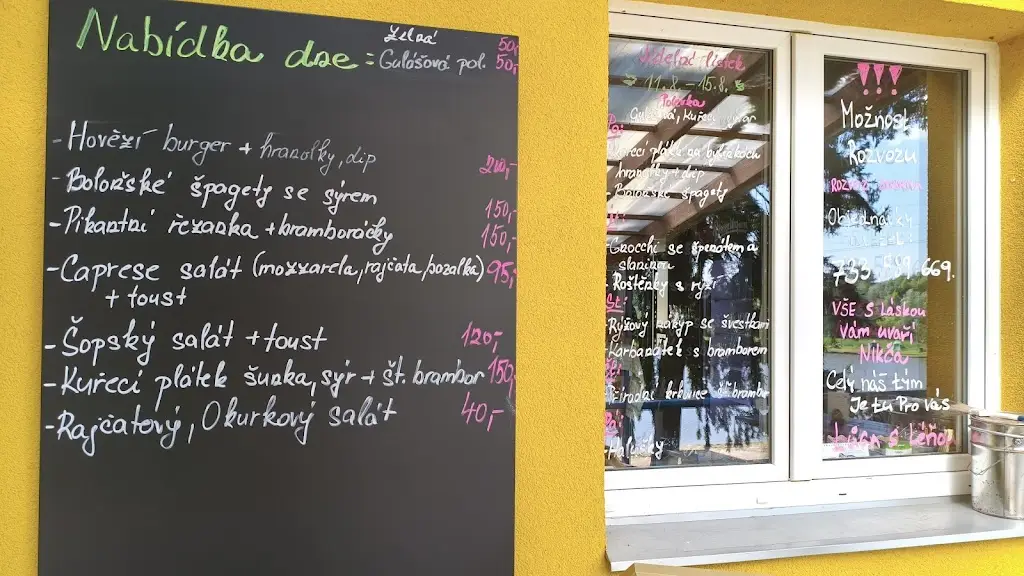 Nabídka dne = Zelná 50,-
Gulášová pol. 50,-
- Hovězí burger + hranolky, dip 200,-
- Boloňské špagety se sýrem 150,-
- Pikantní řezanka + bramboráčky 150,-
- Caprese salát (mozzarela, rajčata, bazalka) 95,-
+ toust
- Šopský salát + toust 120,-
- Kuřecí plátek šunka, sýr + št. brambor 150,-
- Rajčatový, Okurkový salát 40,-
11.8. - 15.8.
Polévka
Po:
plátek na
hranolky + dip
Boloňské špagety
Gnocchi se špenátem a
slaninou
- Roštěnky s rýží
St:
- Rýžový nákyp se švestkami
Karbanátek s bramborem
!!!
Možnost
Rozvozu
Objednávky
733 669.
Vše s láskou
vám uvaří
Nikča
Celý náš tým
Je tu Pro vás